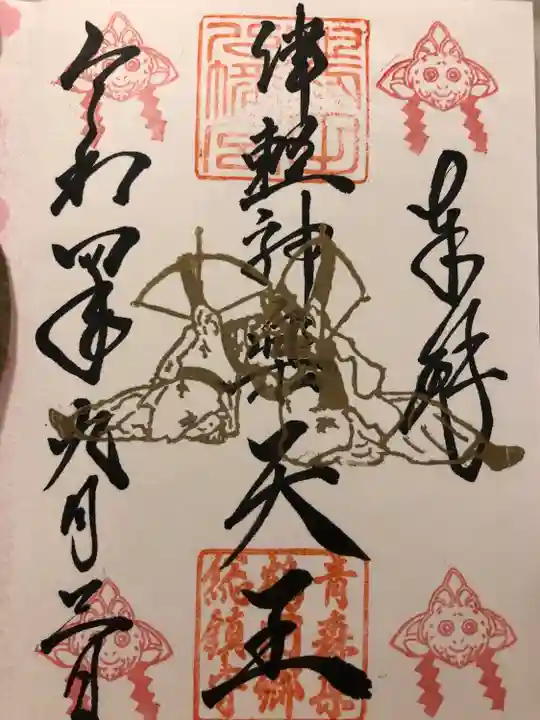 奉拝
津軽神楽天王
令和四年六月二日
青森県
鶴田郷
総鎮守